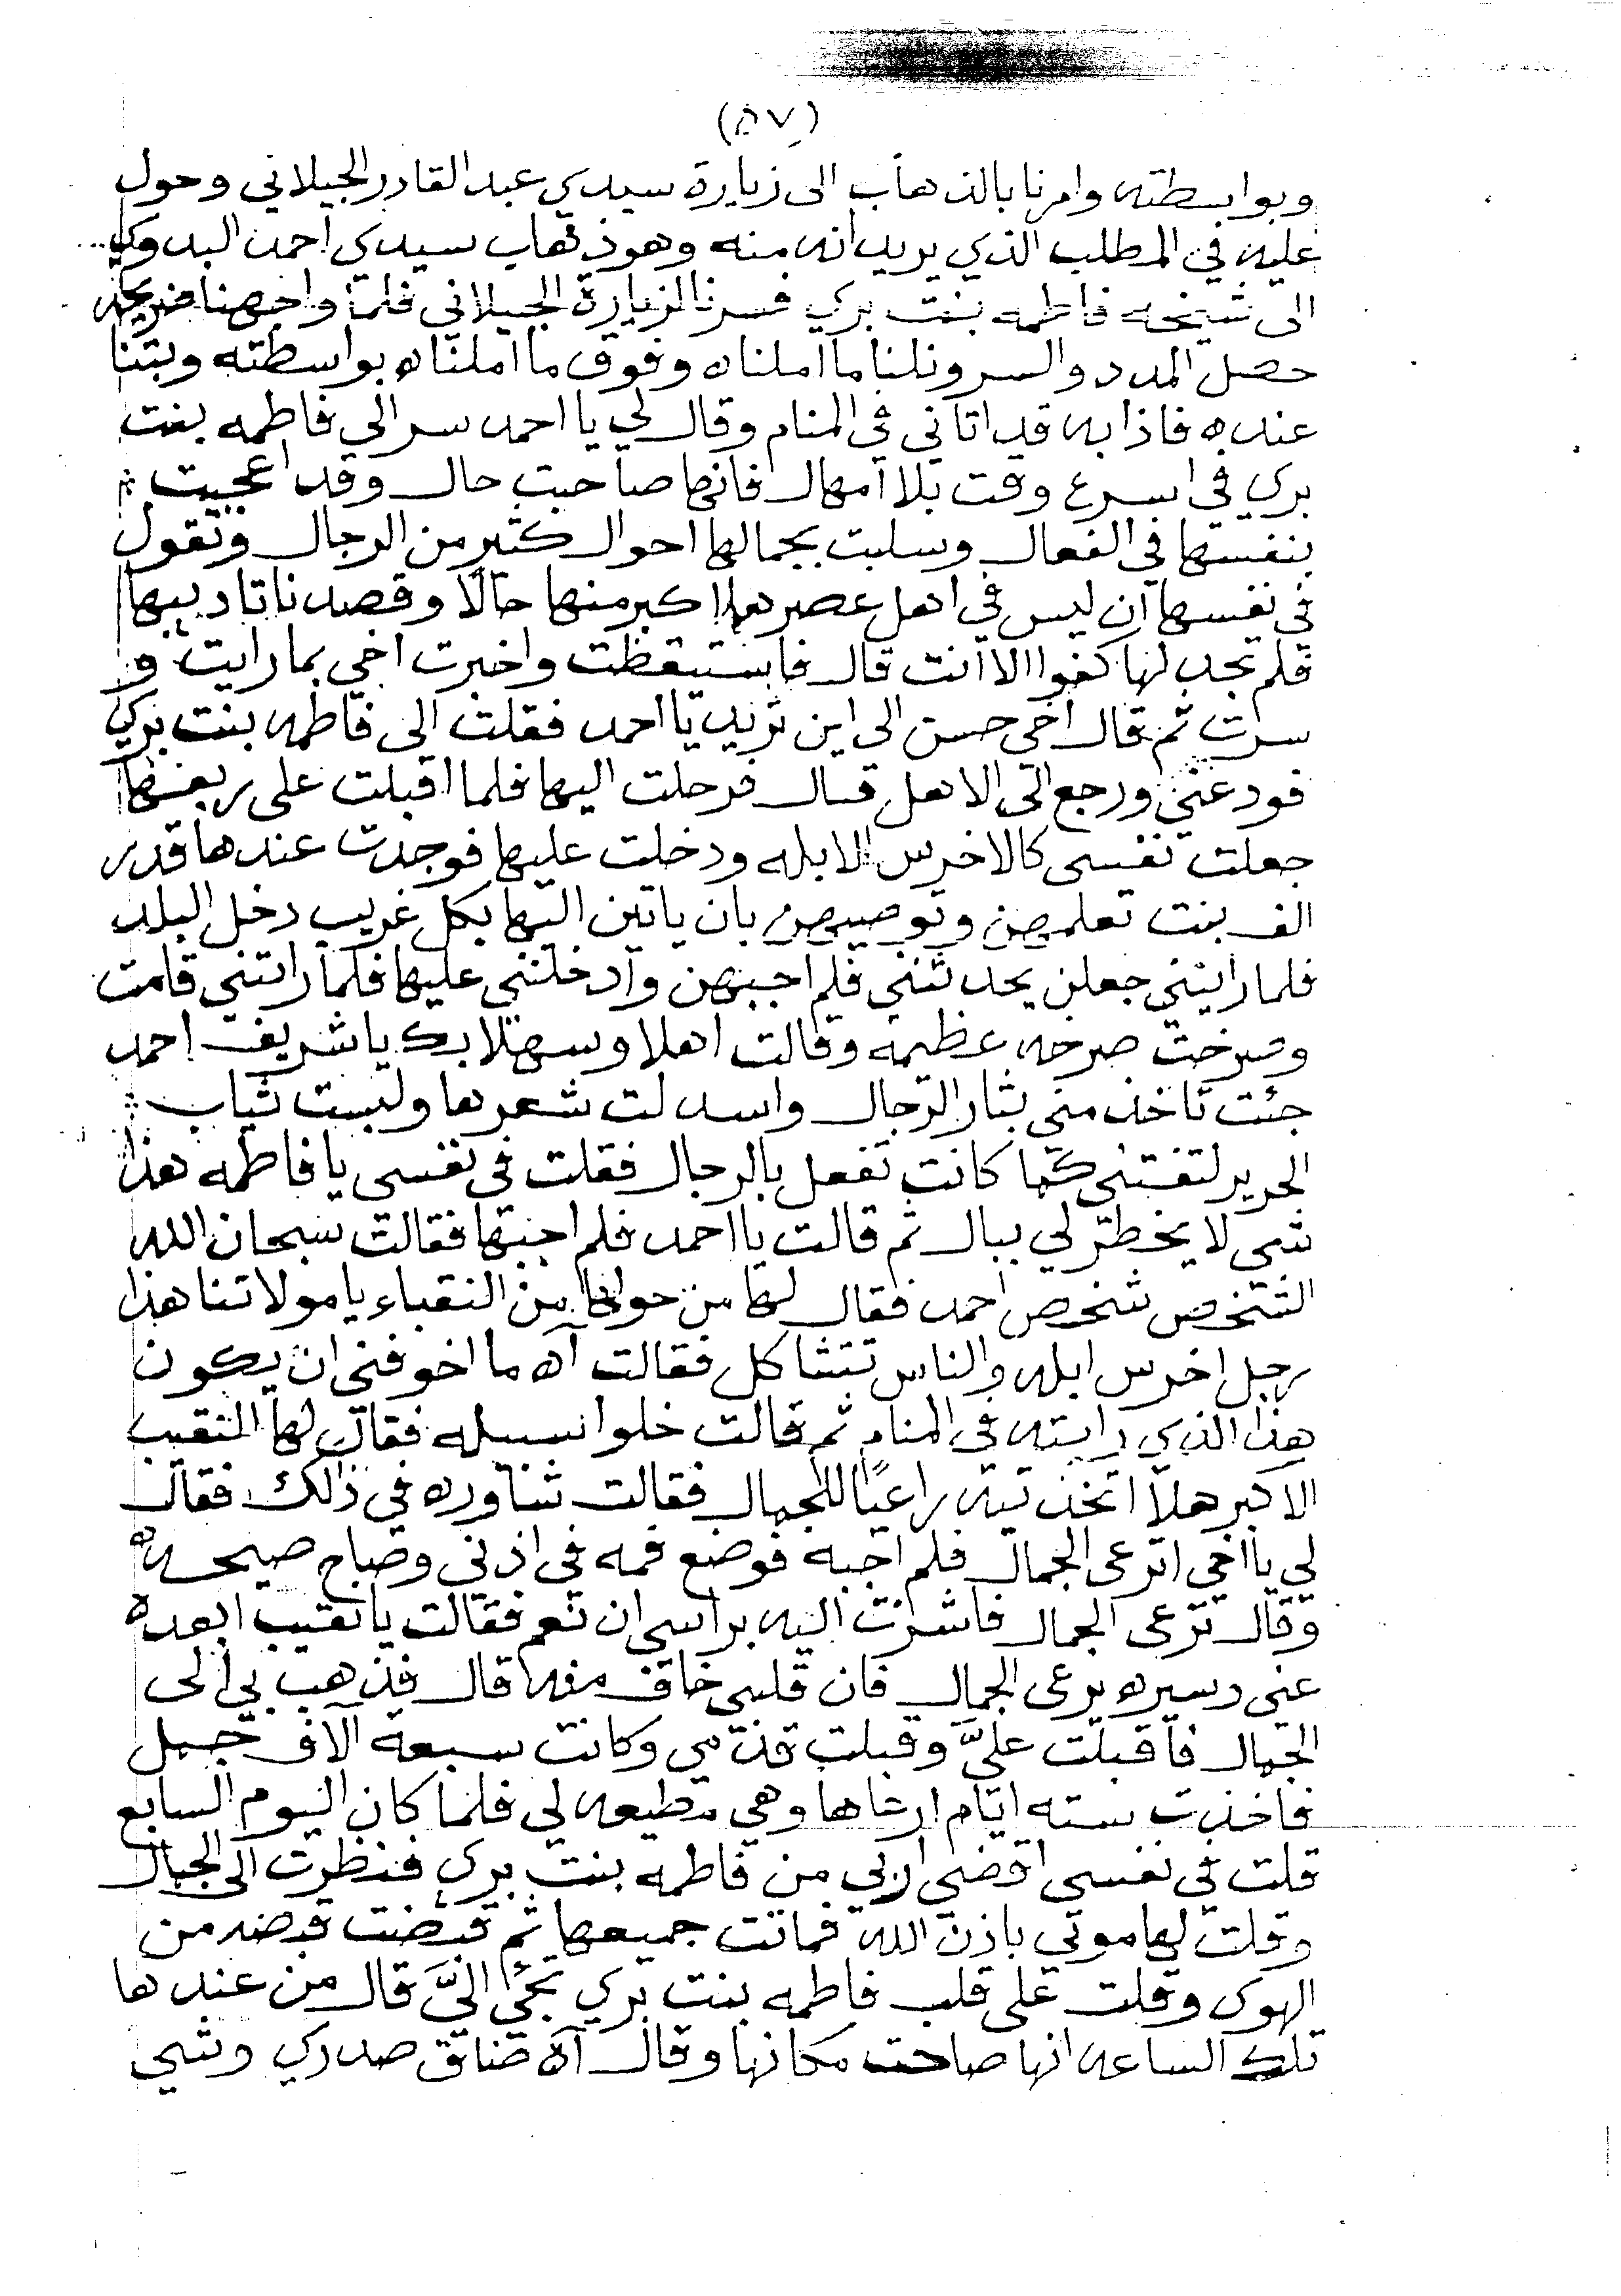 (٥٧)
وبواسطته وامرنا بالذهاب الى زيارة سيدي عبد القادر الجيلاني وحول
عليه في المطلب الذي يريدانه منه وهو ذهاب سيدي احمد البدوي
الى شيخه فاطمه بنت بري فسرنا لزيارة الجيلاني فلما واجهنا ضريحه
حصل المدد والسر ونلنا ما املناه وفوق ما املناه بواسطته وبتنا
عنده فاذا به قد اتاني في المنام وقال لي يا احمد سر الي فاطمه بنت
بري في اسرع وقت بلا امهال فانها صاحبت حال وقد اعجبت
بنفسها في الفعال وسلبت بجمالها احوال كثير من الرجال وتقول
في نفسها ان ليس في اهل عصرها اكبر منها حالًا وقصدنا تاديبها
فلم نجد لها كفوا الا انت قال فاستيقظت واخبرت اخي بما رايت و
سرت ثم قال اخي حسن الى اين تريد يا احمد فقلت الى فاطمه بنت بري
فودعني ورجع الى الاهل قال فرحلت اليها فلما اقبلت على ربعها
جعلت نفسى كالاخرس الابله ودخلت عليها فوجدت عندها قدر
الف بنت تعلمهن وتوصيهن بان ياتين اليها بكل غريب دخل البلد
فلما راينني جعلن يحدثنني فلم اجبهن وادخلنني عليها فلما راتني قامت
وصرخت صرخه عظيمه وقالت اهلا وسهلا بك يا شريف احمد
جئت تاخذ مني بثار الرجال واسدلت شعرها ولبست ثياب
الحرير لتفتني كما كانت تفعل بالرجال فقلت في نفسى يا فاطمه هذا
شي لا يخطر لي ببال ثم قالت يا احمد فلم اجبتها فقالت سبحان الله
الشخص شخص احمد فقال لها من حولها من النقباء يا مولاتنا هذا
رجل اخرس ابله والناس تتشاكل فقالت آه ما اخوفني ان يكون
هذا الذي رايته في المنام ثم قالت خلوا سبيله فقال لها النقيب
الاكبر هلا اتخذتيه راعيًا للجمال فقالت شاوره في ذالك فقال
لي يا اخي اترعى الجمال فلم اجبه فوضع فمه في اذني وصاح صيحه
وقال ترعى الجمال فاشرت اليه براسي ان نعم فقالت يا نقيب ابعده
عني وسيره يرعى الجمال فان قلبي خاف منه قال فذهب بي الى
الجمال فاقبلت عليَّ وقبلت قدمي وكانت سبعة آلاف جمل
فاخذت سته ايام ارعاها وهي مطيعه لي فلما كان اليوم السابع
قلت في نفسي اقضي اربي من فاطمه بنت بري فنظرت الى الجمال
وقلت لها موتي باذن الله فماتت جميعها ثم قبضت قبضه من
الهوى وقلت على قلب فاطمه بنت بري تجي اليَّ قال من عندها
تلك الساعه انها صاحت مكانها وقال آه ضاق صدري وشي